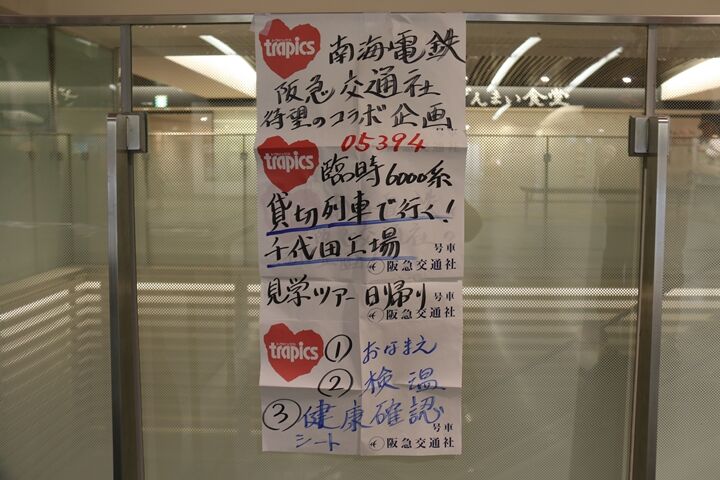 trapics
南海電鉄
阪急交通社
待望のコラボ企画
05394
trapics
臨時6000系
貸切列車で行く!
千代田工場
号車
阪急交通社
見学ツアー日帰り
号車
阪急交通社
trapics
① おなまえ
② 検温
③ 健康確認
シート
号車
阪急交通社
んまい食堂